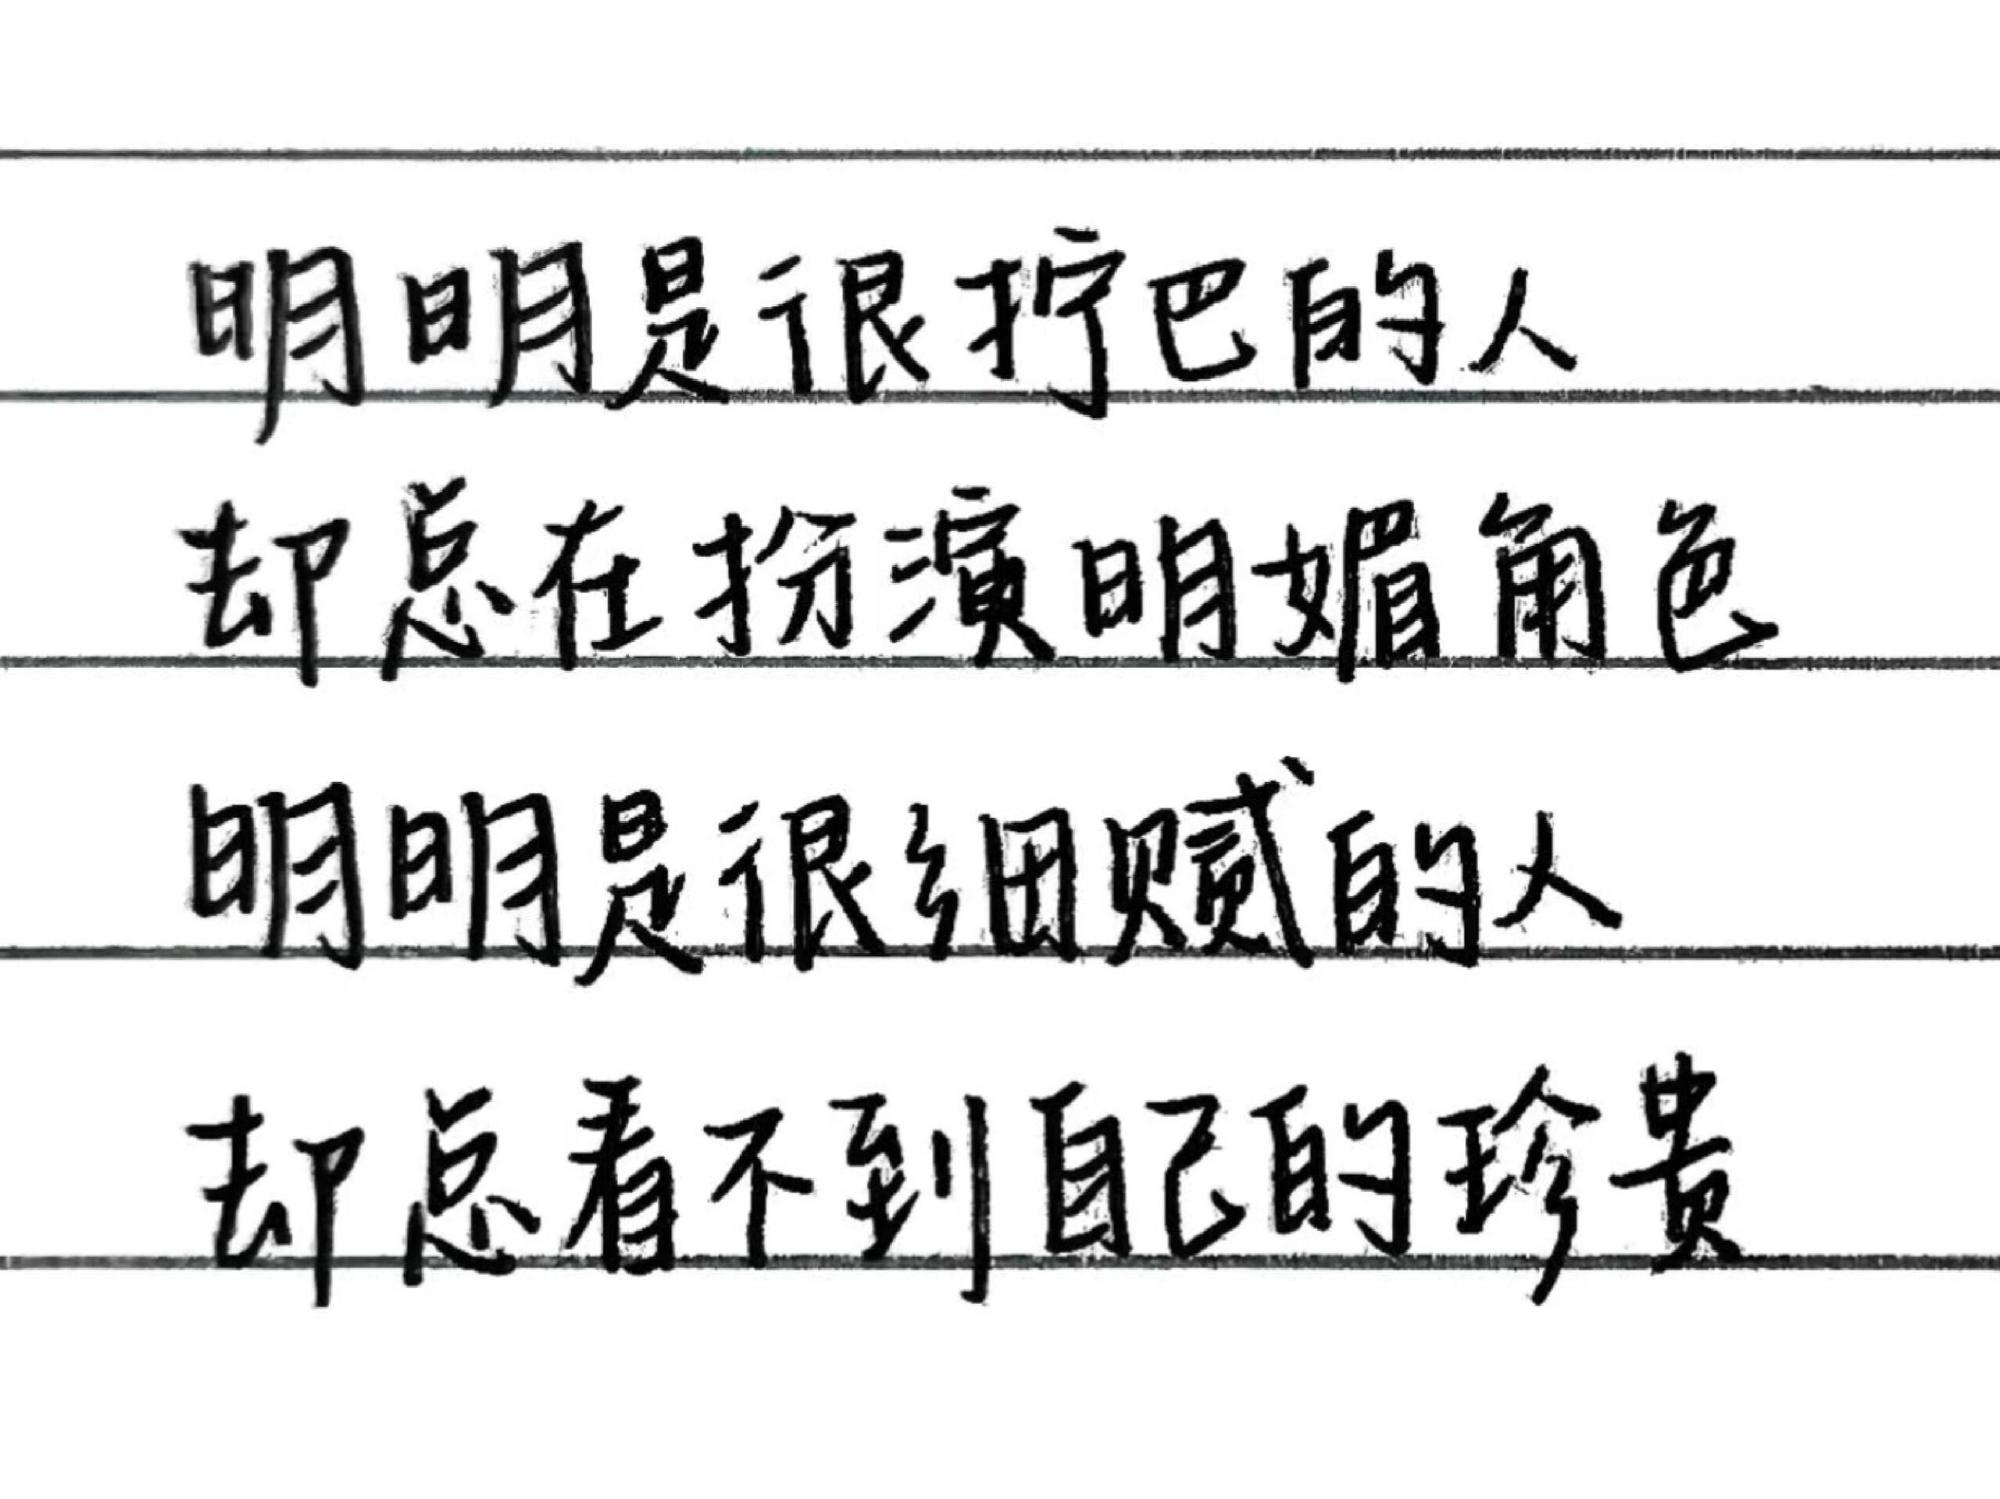 明明是很拧巴的人
却总在扮演明媚角色
明明是很细腻的人
却总看不到自己的珍贵